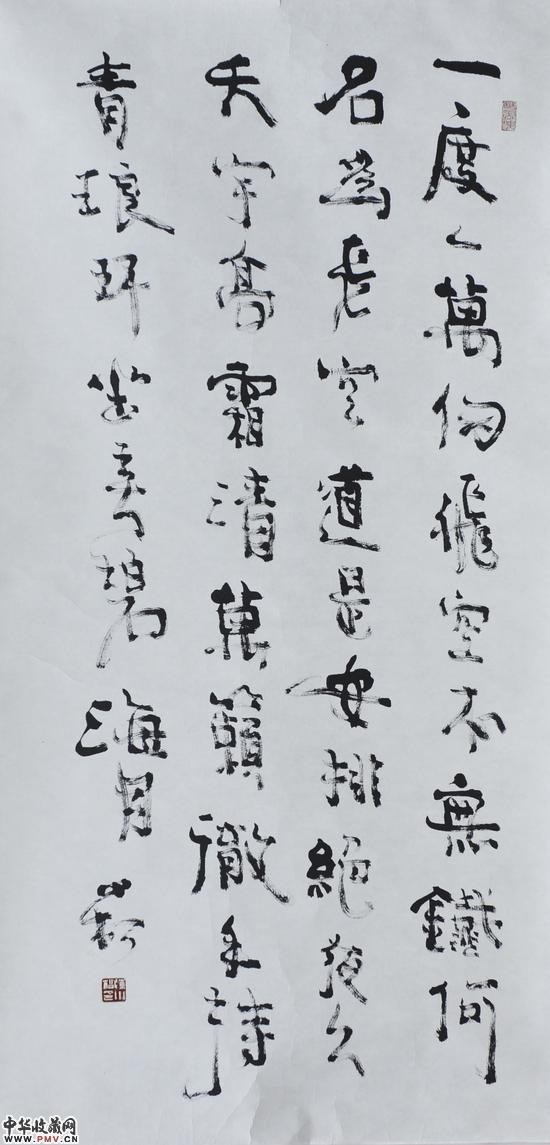 一度萬仞飛空不無鐵何
名為虛空道是安排絕夜久
天宇高霜清萬籟徹手持
青琅玕坐弄碧海月
中华收藏网
www.PMV.CN